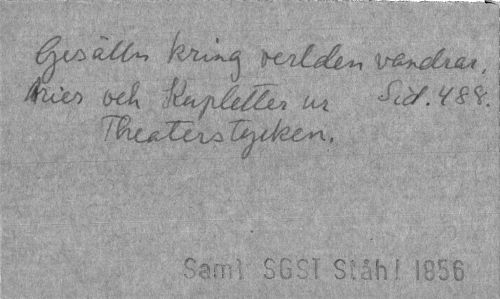 Gesällen kring verlden vandrar,
Arier och Kupletter ur Sid. 488.
Theaterstycken.
Saml SGST Ståhl 1856